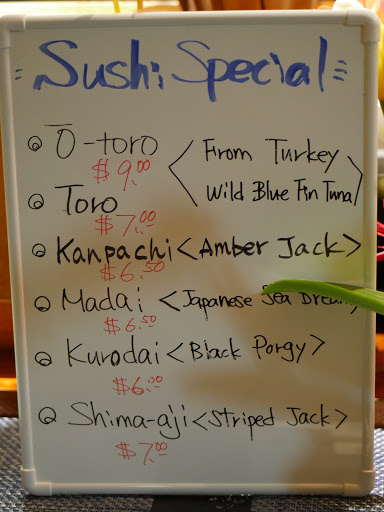 Sushi Special
Ō-toro
$9.00
< From Turkey
Wild Blue Fin Tuna >
Toro
$7.00
Kanpachi <Amber Jack>
$6.50
Madai <Japanese Sea
$6.50
Kurodai <Black Porgy>
$6.00
Shima-aji <Striped Jack>
$7.00